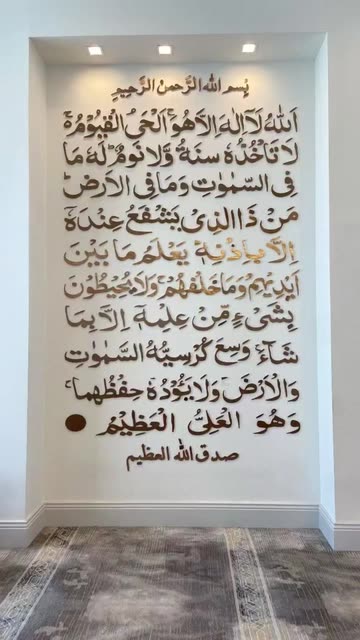 بِسمِ اللهِ الرَّحمنِ الرَّحِيمِ
اَللهُ لَآ اِلٰهَ اِلَّا هُوَ ۚ اَلْحَىُّ الْقَيُّوْمُ ەۚ
لَا تَاْخُذُهٗ سِنَةٌ وَّلَا نَوْمٌ ؕ لَهٗ مَا
فِى السَّمٰوٰتِ وَمَا فِى الْاَرْضِ ؕ
مَنْ ذَا الَّذِىْ يَشْفَعُ عِنْدَهٗۤ
اِلَّا بِاِذْنِهٖ ؕ يَعْلَمُ مَا بَيْنَ
اَيْدِيْهِمْ وَمَا خَلْفَهُمْ ۚ وَلَا يُحِيْطُوْنَ
بِشَىْءٍ مِّنْ عِلْمِهٖۤ اِلَّا بِمَا
شَآءَ ۚ وَسِعَ كُرْسِيُّهُ السَّمٰوٰتِ
وَالْاَرْضَ ۚ وَلَا يَـُٔوْدُهٗ حِفْظُهُمَا ۚ
وَهُوَ الْعَلِىُّ الْعَظِيْمُ
صدق الله العظيم